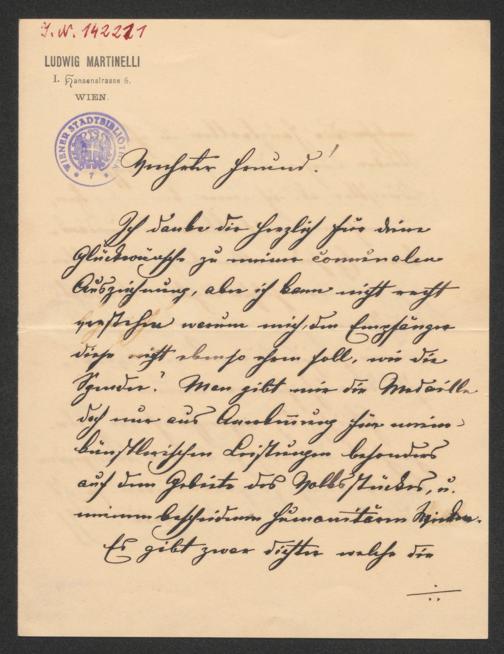 J. N. 142221
LUDWIG MARTINELLI
I. Hansenstrasse 6.
WIEN.
WIENER STADTBIBLIOTHEK
7
Verehrter Freund!
Ich danke dir herzlich für deine
Glückwünsche zu meiner communalen
Auszeichnung, aber ich kann nicht recht
verstehen warum mich, den Empfänger
diese nicht ebenso ehren soll, wie die
Spender? Man gibt mir die Medaille
doch nur aus Anerkennung für meine
künstlerischen Leistungen besonders
auf dem Gebiete des Volksstückes, u.
meinem bescheidenen humanitären Wirken.
Es gibt zwar Dichter welche die